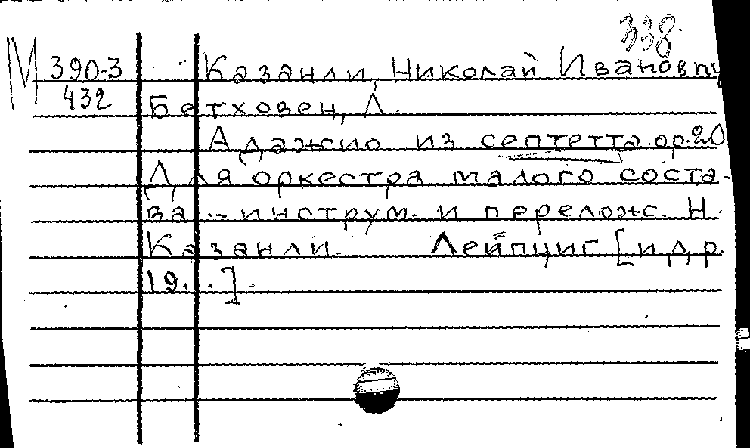 338
М 390-3 Казанли, Николай Иванович
432 Бетховен, Л.
Адажио из септетта ор. 20
Для оркестра малого соста-
ва - инструм. и перелож. Н.
Казанли. Лейпциг [и др.
19...]